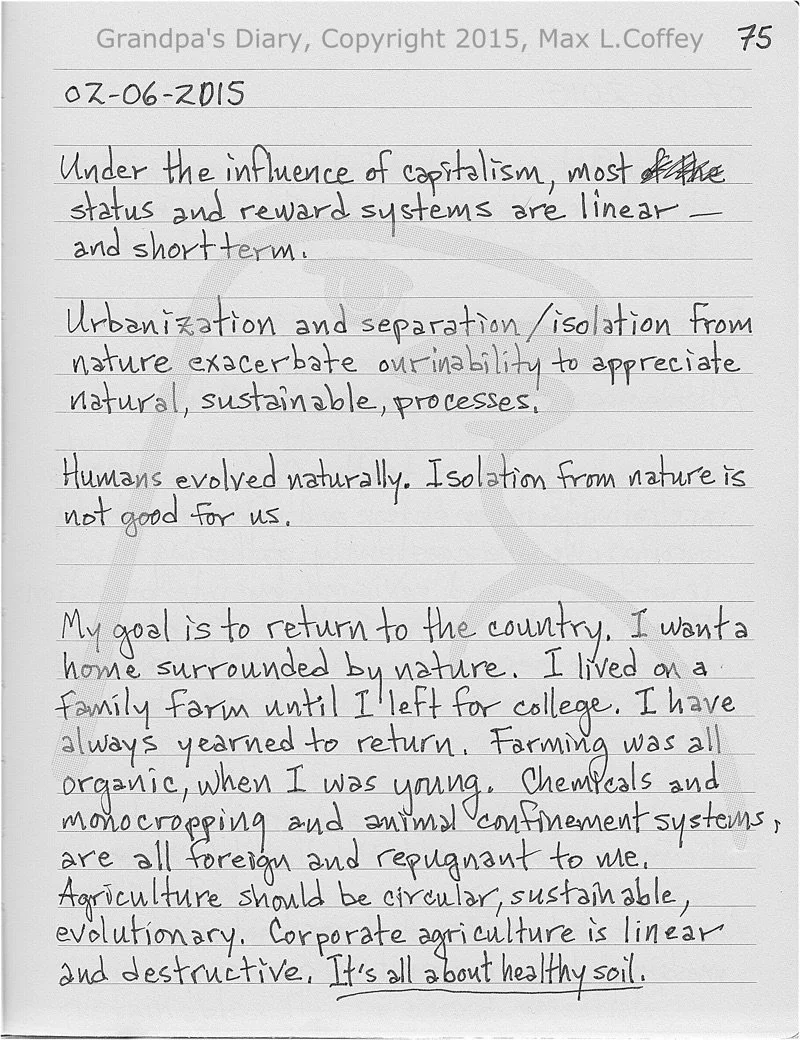 Grandpa's Diary, Copyright 2015, Max L.Coffey 75
02-06-2015
Under the influence of capitalism, most of the
status and reward systems are linear —
and short term.
Urbanization and separation/isolation from
nature exacerbate our inability to appreciate
natural, sustainable, processes.
Humans evolved naturally. Isolation from nature is
not good for us.
My goal is to return to the country. I want a
home surrounded by nature. I lived on a
family farm until I left for college. I have
always yearned to return. Farming was all
organic, when I was young. Chemicals and
monocropping and animal confinement systems,
are all foreign and repugnant to me.
Agriculture should be circular, sustainable,
evolutionary. Corporate agriculture is linear
and destructive. It's all about healthy soil.